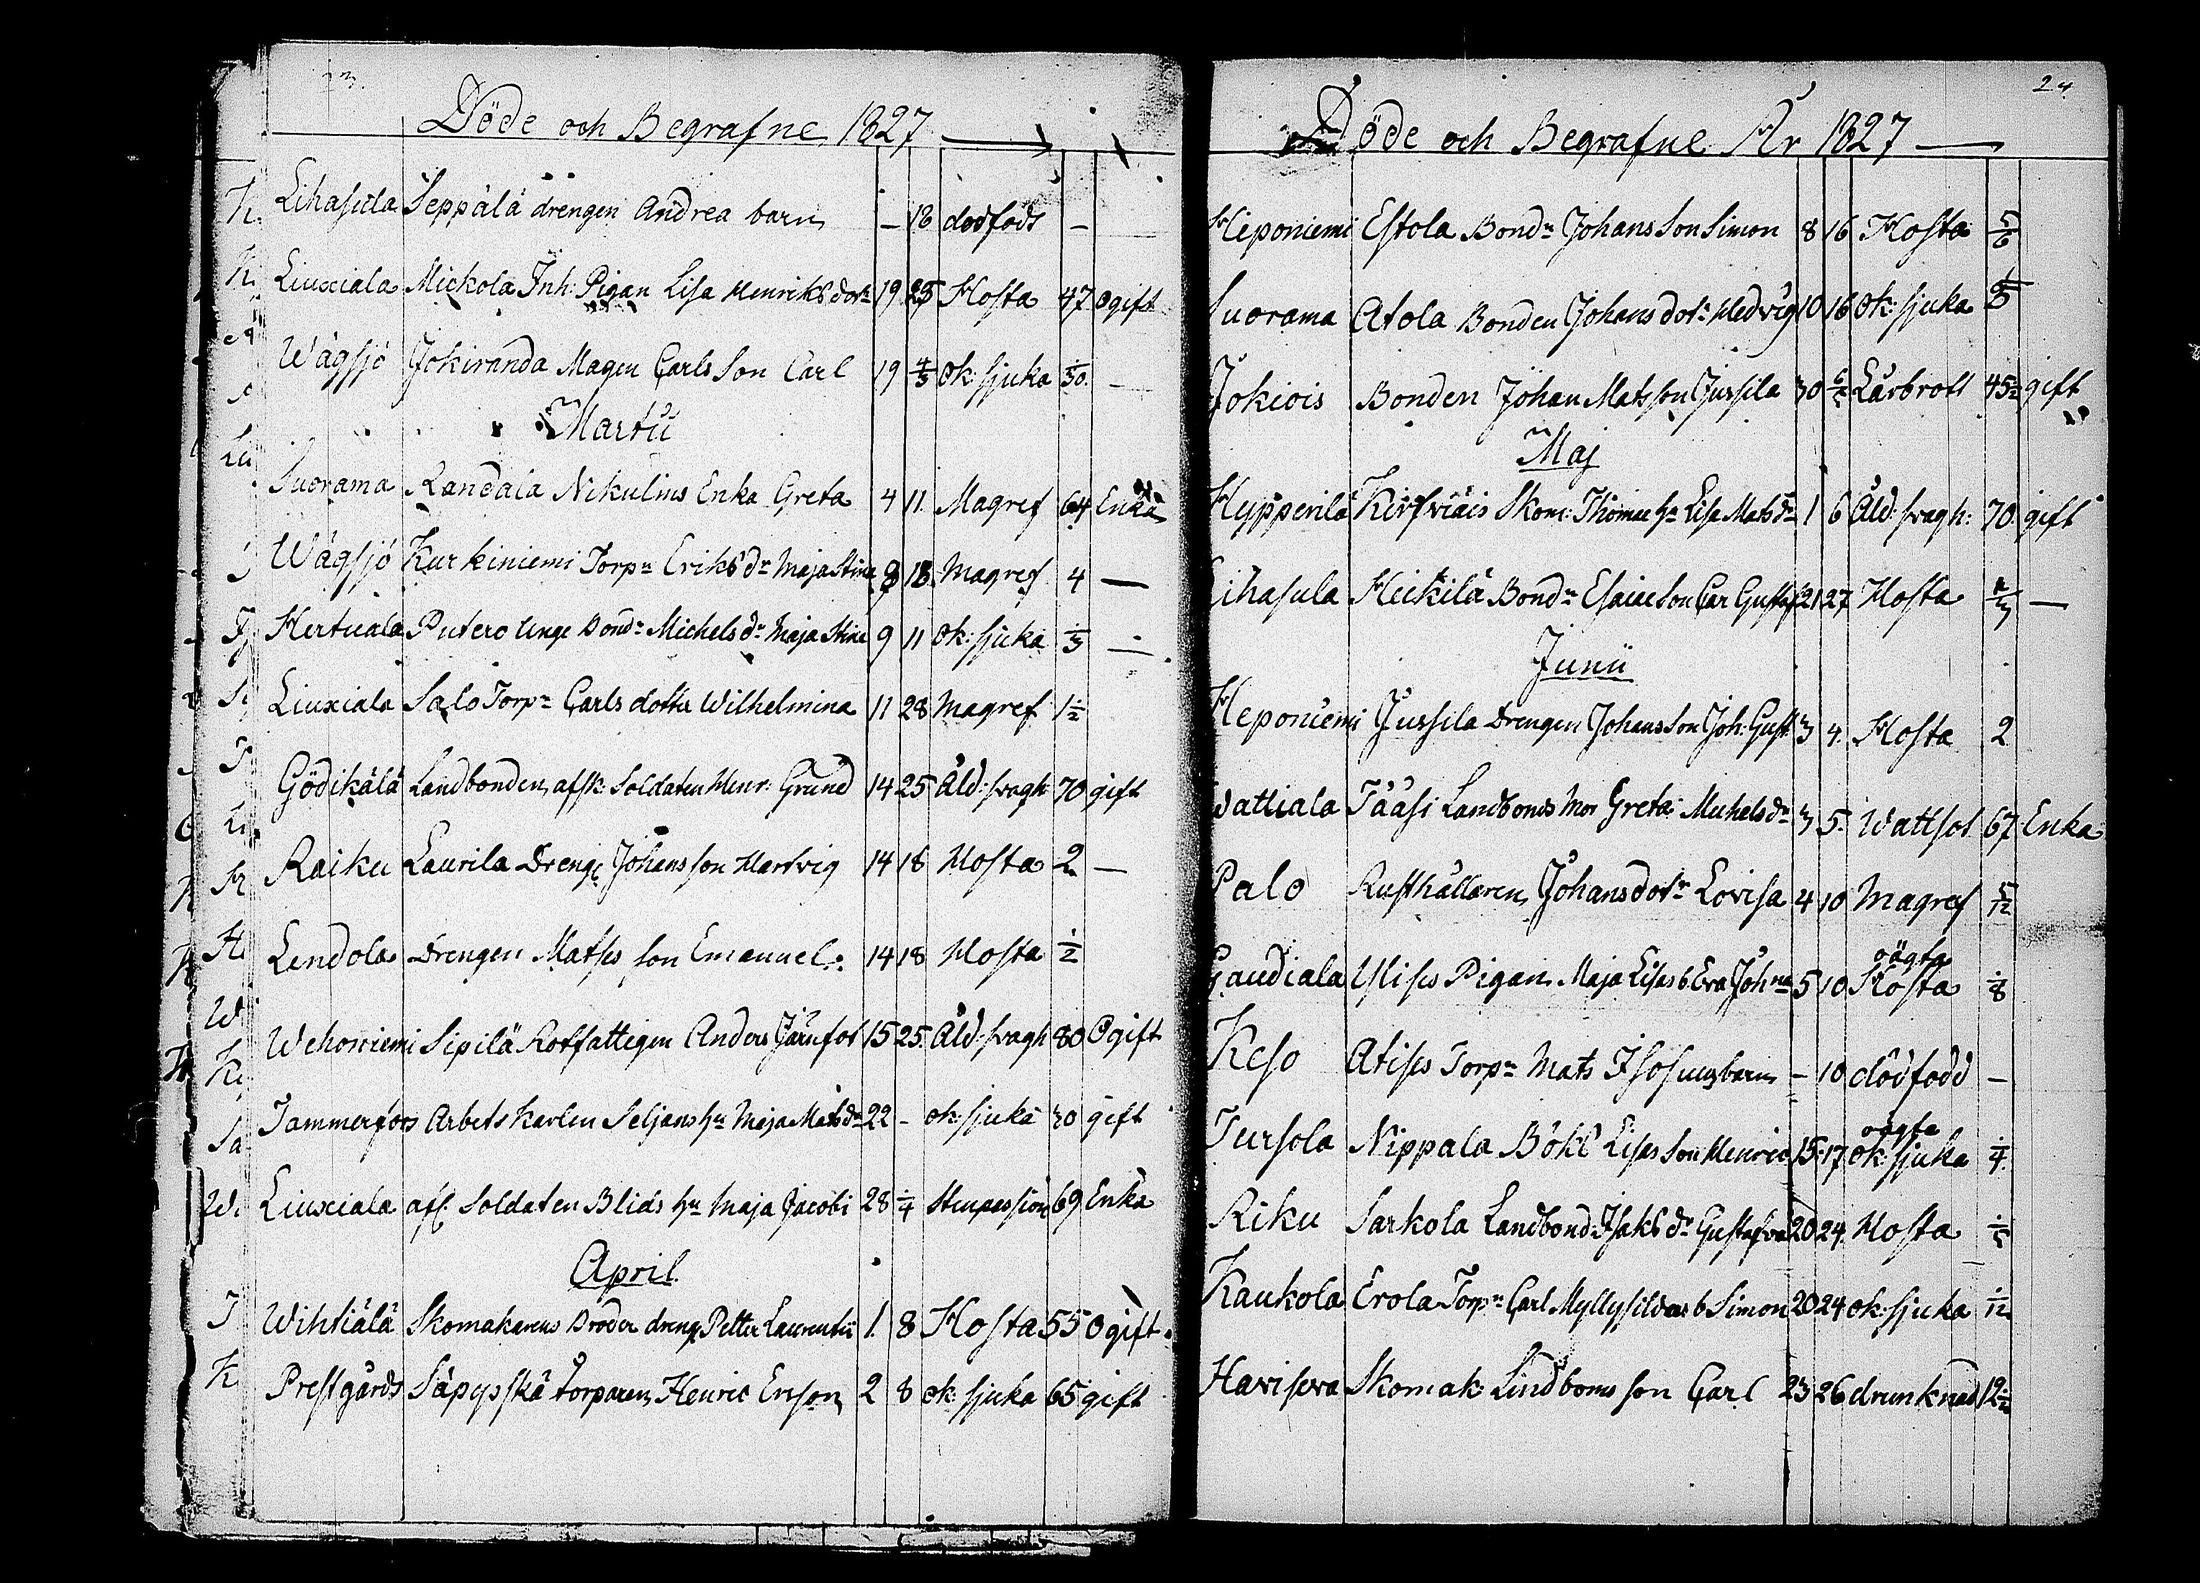 23.
Döde och Begrafne 1827
Lihasula Seppälä drengen Andrea barn – 18 dödföds –
Liuxiala Mickola Inh: Pigan Lisa Henriks dotr 19 25 Hosta 47 Ogift
Wägsjö Jokiranda Magen Carls Son Carl 19 4/3 ok: sjuka 1/50. –
Martii
Suorama Randala Nikulins Enka Greta 4 11. Magref 64 Enka
Wägsjö Kurkiniemi Torpn Eriks dr Maja Stina 8 18. Magref 4 –
Hertuala Putero Unge Bondn Michels dr Maja Stina 9 11 ok: sjuka 1/3 –
Liuxiala Salo Torpn Carls dotter Wilhelmina 11 28 Magref 1½
Gödikälä Landbonden, afsk: Soldaten Henr: Grund 14 25 Åld: svagh 70 gift
Raiku Laurila Dreng: Johans son Hartvig 14 18 Hosta 2 –
Lendola Drengen Matses son Emanuel 14 18 Hosta ½
Wehoniemi Sipilä Rotfattigen Anders Järnfot 15 25. Åld: svagh 80 Ogift
Tammerfors Arbets Karlen Seljans hu Maja Mats dr 22 – ok: sjuka 30 gift
Liuxiala afs. Soldaten Blids hu Maja Jacobi 28 1/4 69 Enka
April
Wihtiälä Skomakarens Broder dreng Petter Laurentii 1. 8 Hosta 55 Ogift.
Prestgårds Säpyskä torparen, Henric Ersson 2 8 ok: sjuka 65 gift
24
Döde och Begrafne År 1827
Heponiemi Estola Bondn Johans Son Simon 8 16 Hosta 5/6
Suorama Atola Bonden Johans dotr Hedvig 10 16 ok: sjuka
Jokiois Bonden Johan Matsson Jussila 30 6/5 Lårbrott 45½ gift
Maj
Hypperilä Skom: Thomae hu Lisa Mats dr 1 6 Åld: svagh: 70. gift
Lihasula Heickilä Bondn Esaiae Son Car Gustaf 21 27 Hosta –
Junii
Heponiemi Jussila Drengen Johans Son Joh: Gust: 3 4. Hosta 2
Wattiala Tääsi Landbonds Mor Greta Michels dr 3 5. Wattsot 67. Enka
Palo Rusthållaren, Johans dotr Lovisa 4 10 Magref 5/12
Gaudiala Ylises Pigan Maja Lisas b Eva Johna 5 10 oägta Hosta 1/8
Keso Atises Torpn Mats barn – 10 dödfödd –
Tursola Nippala Bökl Lises Son Henric 15. 17. oägta ok: sjuka 1/4.
Riku Sarkola Landbond: Isaks dr Gustafva 20 24. Hosta
Kaukola Erola Torpn Carl Myllysildas b Simon 20 24 ok: sjuka 1/12
Havisova Skomak: Lindboms son Carl 23 26 drunknad 12½